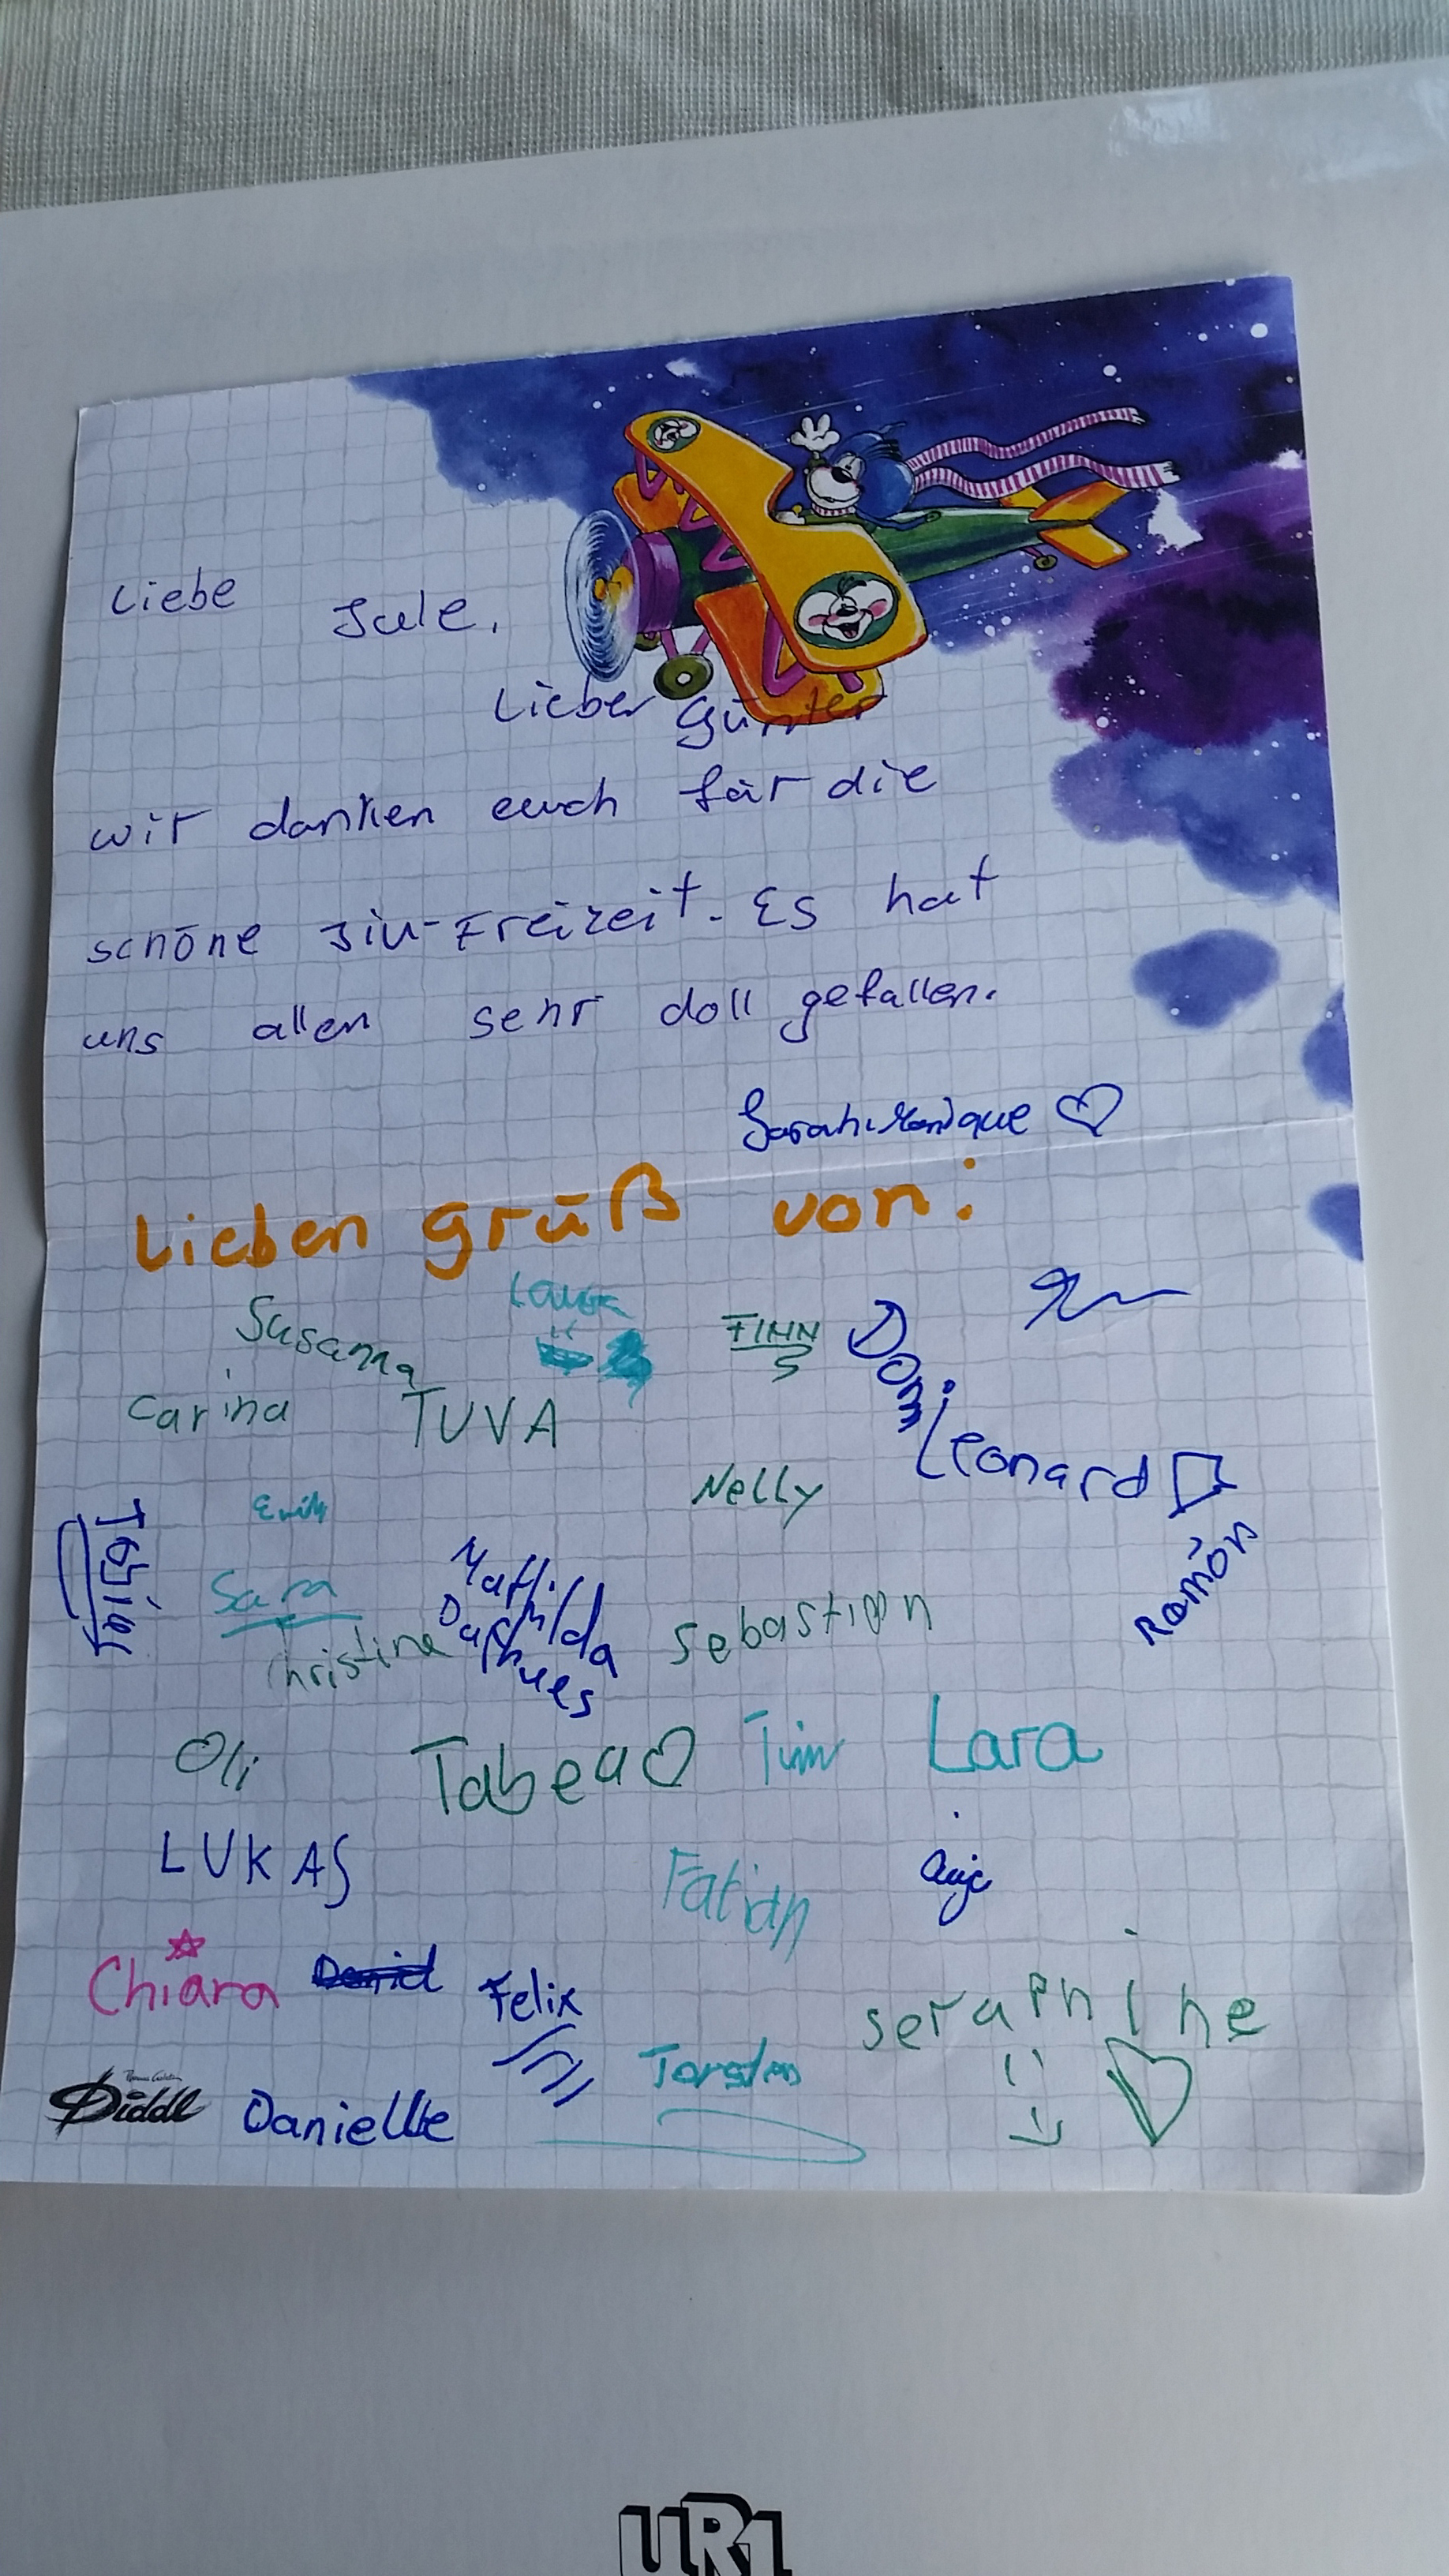 Liebe Jule,
Lieber Günter
wir danken euch für die
schöne Jiu-Freizeit. Es hat
uns allen sehr doll gefallen.
Sarah-Monique
Lieben gruß von:
Laura
Susanna
FINN
Domi
Carina
TUVA
Leonard
Nelly
Emily
Ramón
Sara
Mathilda
Christina
Sebastian
Oli
Tabea
Tim
Lara
LUKAS
Fabian
Chiara
Felix
Seraphine
Torsten
Diddl
Danielle
URI